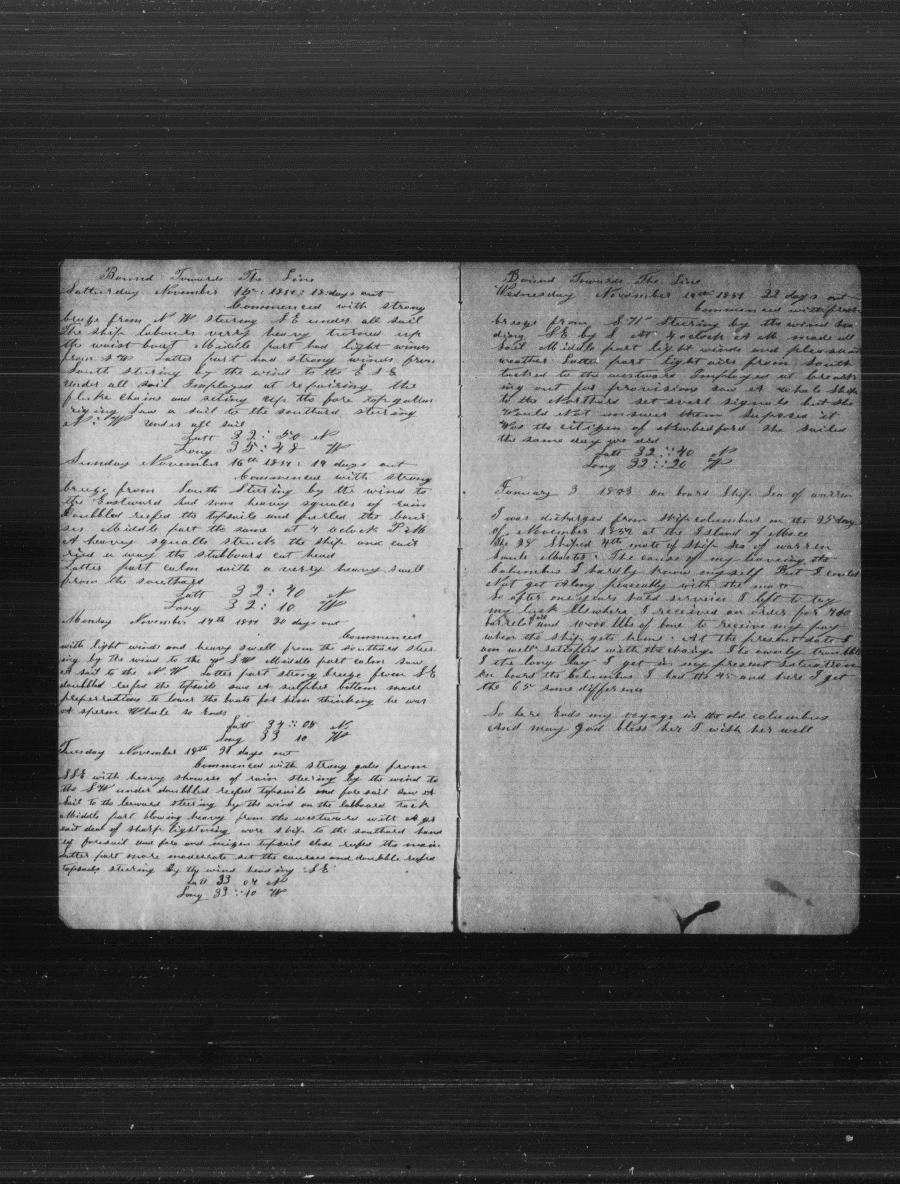 Bound Towards The Line
Satturday November 15th: 1851: 18: days out
Commenced with strong
breeze from N W steering S E under all sail
The ship labours verry heavy
the waist boat Middle part had light winds
from S W Latter part had strong winds from
South stering by the wind to the E S E
under all sail Imployed at repairing the
fluke chains and seting up the fore top gallon
riging saw a sail to the southard stering
N: W under all sail
Latt 32: 50 N
Long 35: 48 W
Sunday November 16th 1851: 19 days out
Commenced with strong
breeze from South Stering by the wind to
the Eastward had som heavy squales of rain
Doubbled reefed the topsails and furled the
Middle part the same at 4 oclock P M
A heavy squalle struck the ship and
ried a way the stabboard cat head
Latter part calm with a verry heavy swell
from the southard
Latt 32: 40 N
Long 32: 10 W
Monday November 17th 1851 20 days out
Commenced
with light winds and heavy swell from the southard steer
ing by the wind to the W S W Middle part calm saw
A sail to the N W Latter part strong breeze from S E
doubbled reefed the topsails saw A sulpher bottom made
preperrations to lower the boats for him thinking he was
A sperm Whale so Ends
Latt 34:: 08 N
Long 33 10 W
Tuesday November 18th 21 days out
Commenced with strong gales from
S S E with heavy showers of rain stering by the wind to
the S W under doubbled reefed topsails and fore sail saw A
Sail to the leeward stering by the wind on the labboard tack
Middle part blowing heavy from the westward with A gr
eait deal of sharp lightning wore ship to the southard
ed foresail and fore and mizen topsail close refed the main
Latter part more moderate set the courses and doubble refed
topsails stering by the wind heading S E
Latt 33 04 N
Long 33:: 10 W
Bound Towards The Line
Wednesday November 19th 1851 22 days out
Commenced with fresh
breeze from S W Stering by the wind
ding S E by S At 4 oclock A M made all
sail Middle part light winds and pleasant
weather Latter part light airs from South
tacked to the westward Imployed at breack
ing out for provisions saw A whale Ship
to the Northard set overl signals but She
Would Not answer them Suposed it
Was the citizen of Newbedford she sailed
the same day we did
Latt 32:: 40 N
Long 32:: 20 W
January 3 1853 on board Ship Sea of warren
I was discharged from Ship columbus on the 23 day
of November 1852 at the Island of
the 28 Shiped 4th mate of Ship Sea of warren
The cause of my leaveing the
Columbus I hardly know myself But I could
Not get Along peaceably with the
So after one years hard service I left to try
my luck Elswhere I received an order for 400
barrels oil and 10000 lbs of bone to receive my pay
when the ship gets home. At the present date I
am well satisfied with the change The ownly trubble
I the lay I got in my present situation
on board the Columbus I had the 45 and here I get
the 65 some difference
So here Ends my voyage in the old columbus
And may god bless her I wish her well